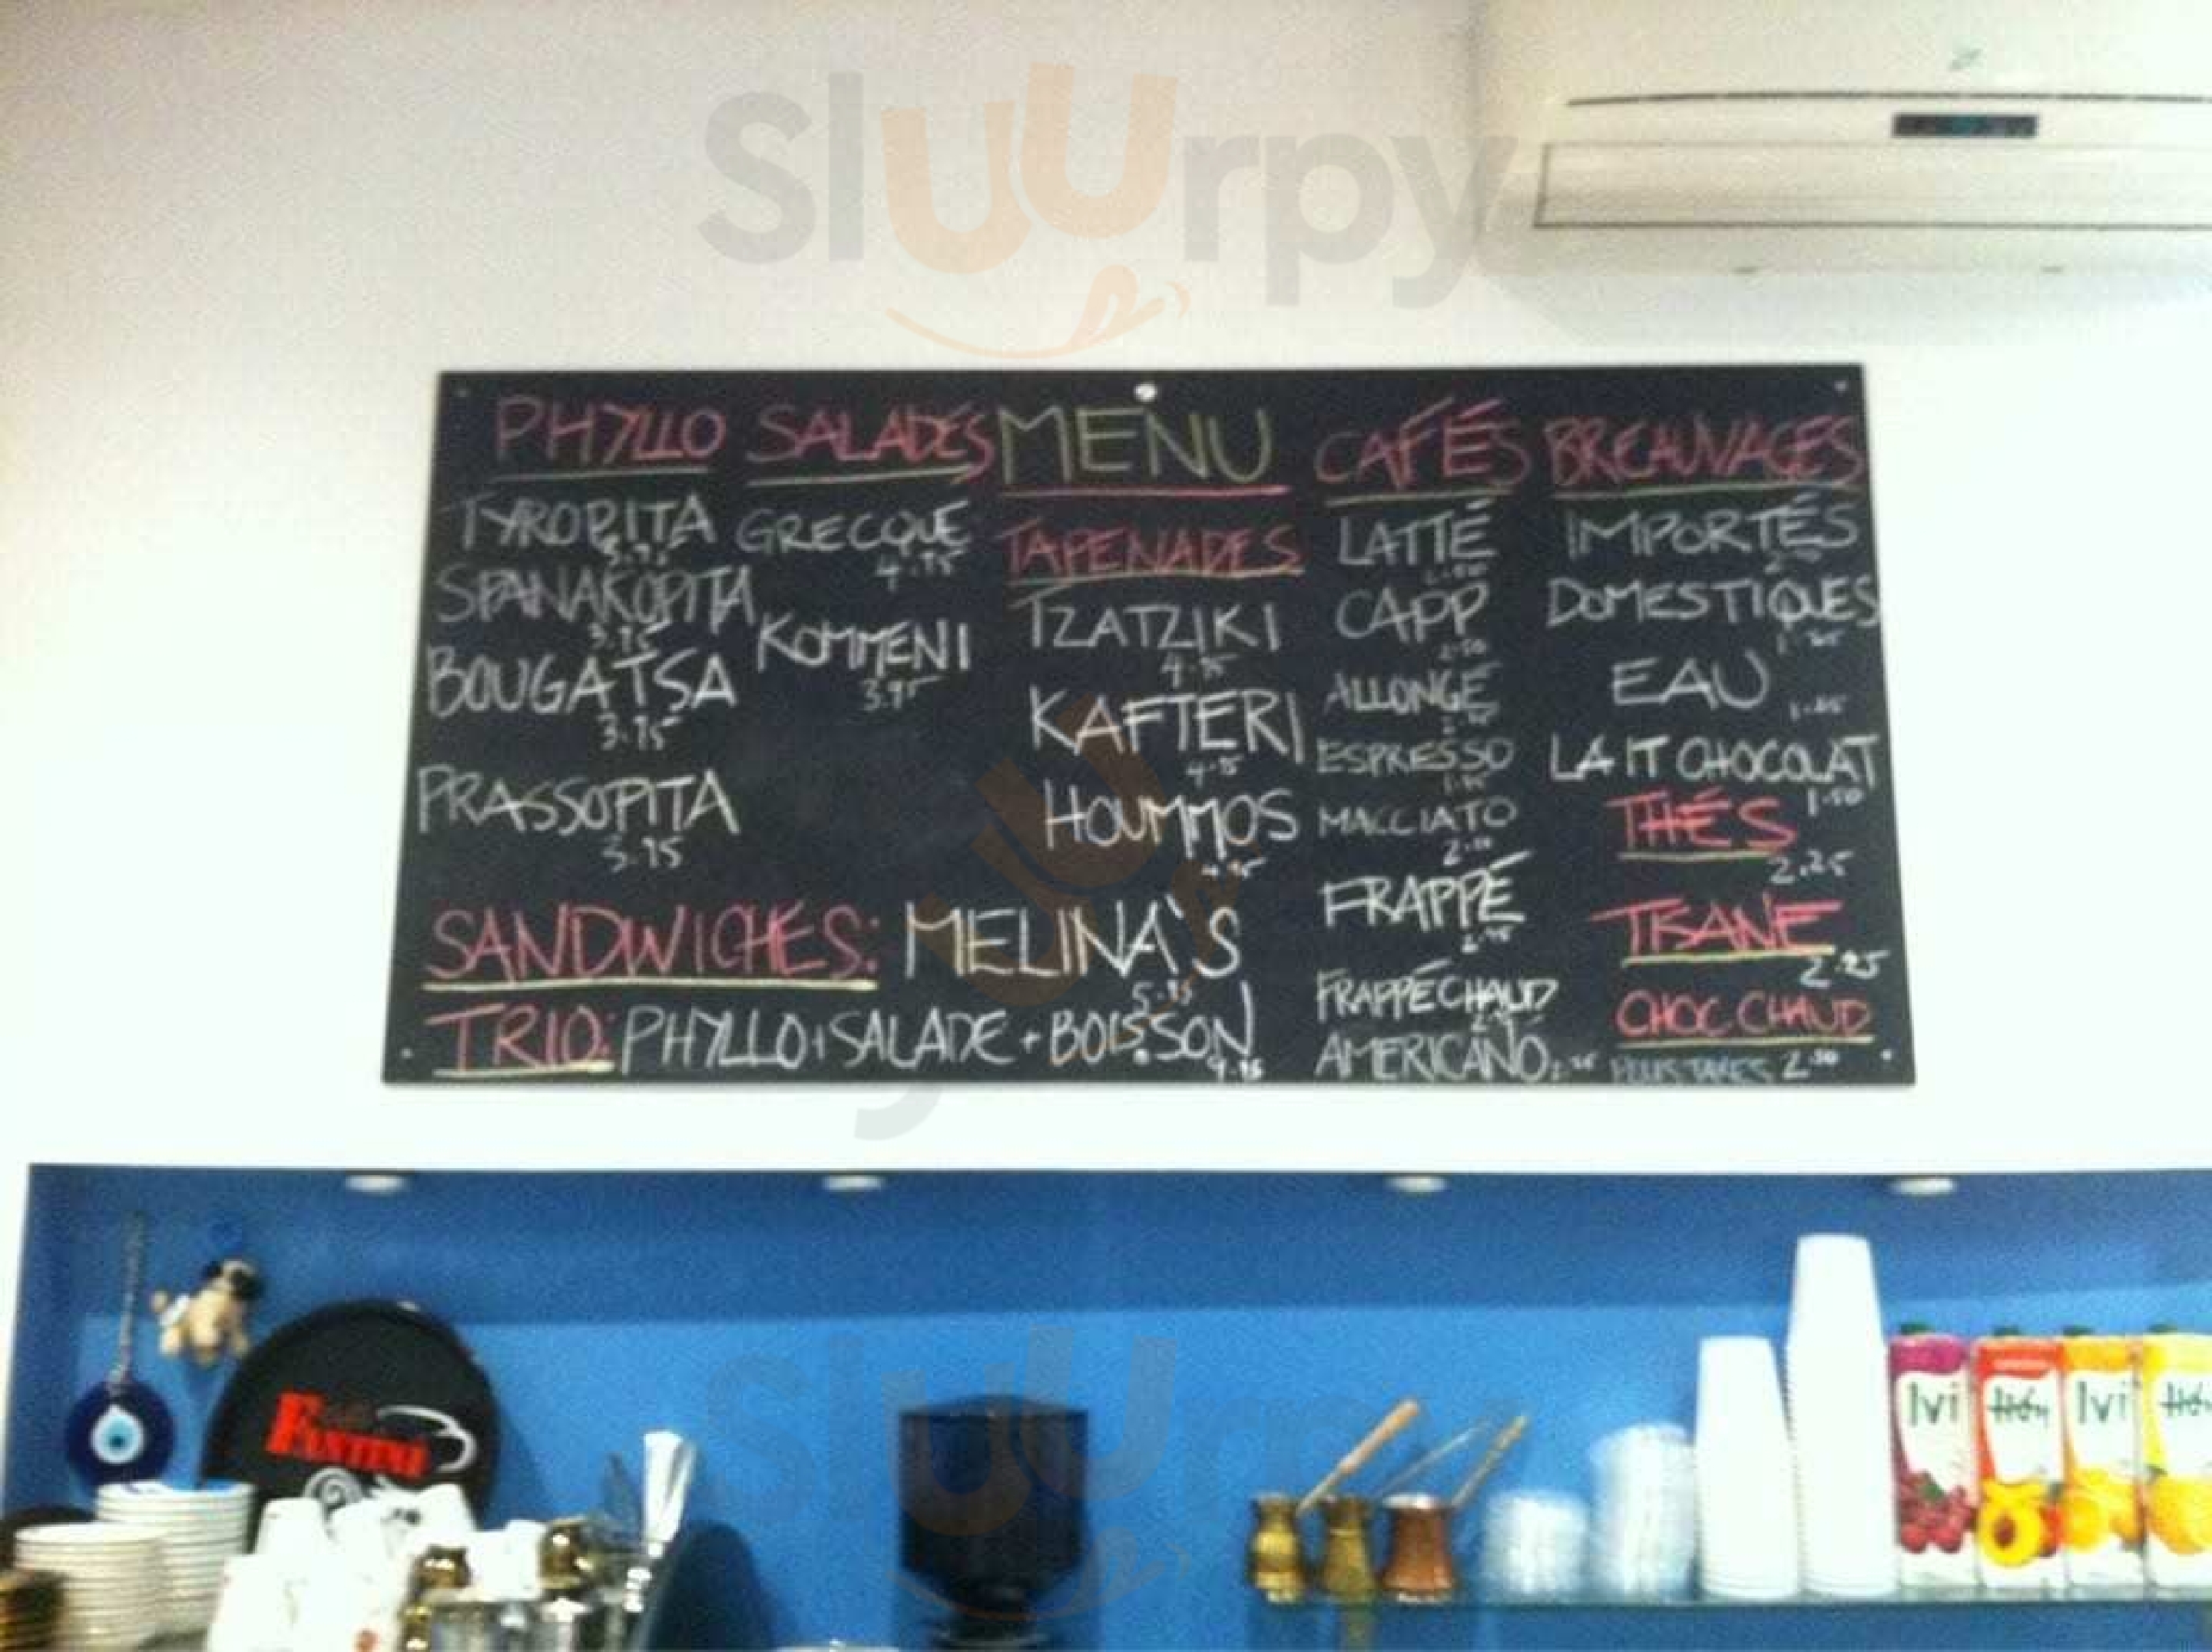 Sluurpy
PHYLLO
TYROPITA
3.75
SPANAKOPITA
3.75
BOUGATSA
3.75
PRASSOPITA
3.75
SALADES
GRECQUE
4.95
KOMMENI
3.95
MENU
TAPENADES
TZATZIKI
KAFTERI
HOUMMOS
4.95
SANDWICHES: MELINA'S
5.95
TRIO: PHYLLO+SALADE+BOISSON
9.95
CAFÉS
LATTÉ
CAPP
2.50
ALLONGÉ
ESPRESSO
MACCIATO
FRAPPÉ
FRAPPÉ CHAUD
AMERICANO
BREAUVAGES
IMPORTÉS
DOMESTIQUES
1.25
EAU
LAIT CHOCOLAT
1.50
THÉS
2.25
TISANE
2.25
CHOC CHAUD
PLUS TAXES 2.50
FANTINI
Ivi
Ήβη
Ivi
Sluurpy